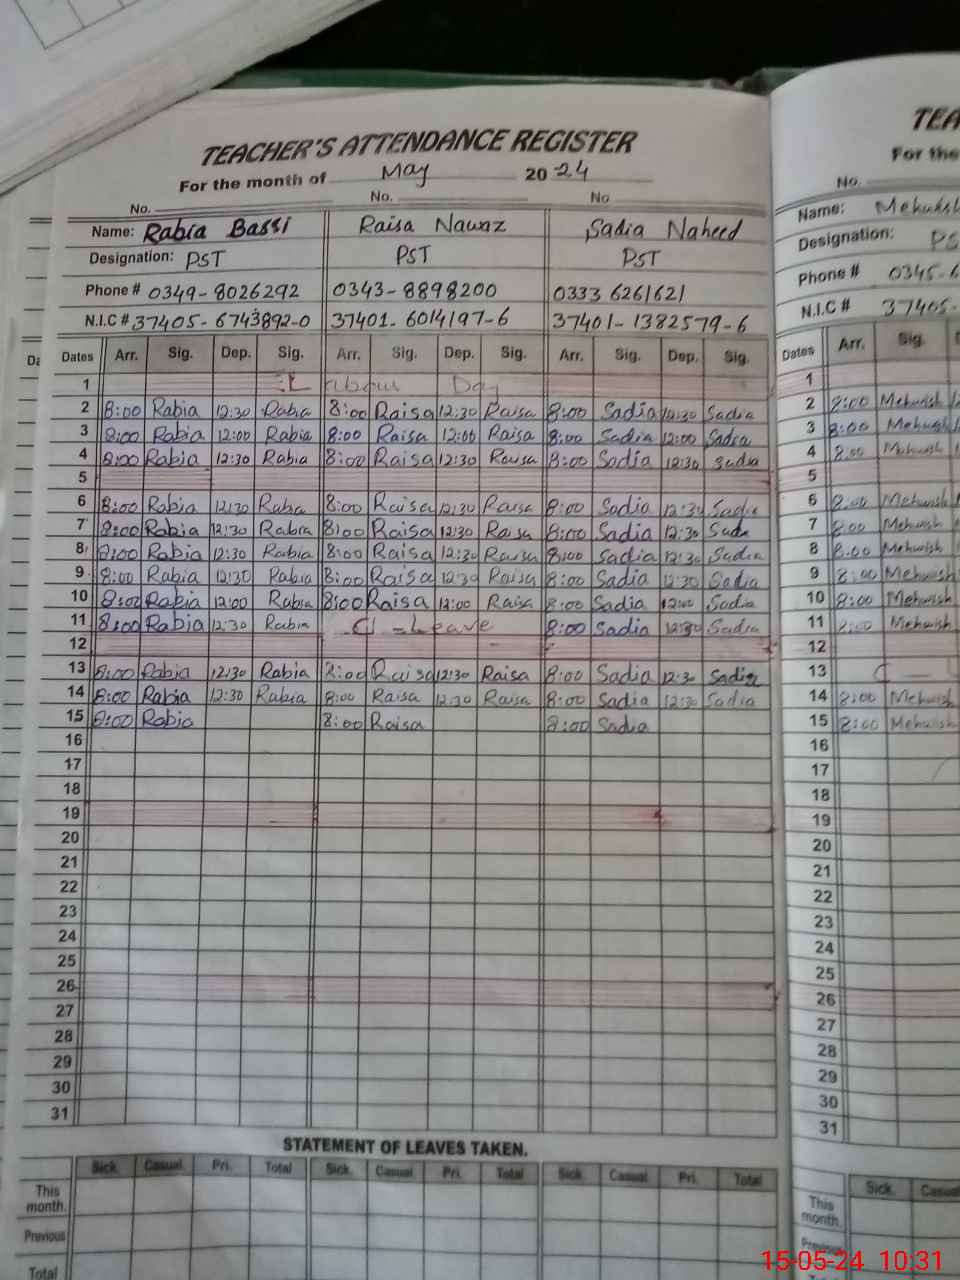 TEACHER'S ATTENDANCE REGISTER
For the month of May 2024
No. No. No
Name: Rabia Bassi Raisa Nawaz Sadia Naheed
Designation: PST PST PST
Phone # 0349-8026292 0343-8898200 0333 6261621
N.I.C # 37405-6743892-0 37401-6014197-6 37401-1382579-6
Dates Arr. Sig. Dep. Sig. Arr. Sig. Dep. Sig. Arr. Sig. Dep. Sig.
1 Labour Day
2 8:00 Rabia 12:30 Rabia 8:00 Raisa 12:30 Raisa 8:00 Sadia 12:30 Sadia
3 8:00 Rabia 12:00 Rabia 8:00 Raisa 12:00 Raisa 8:00 Sadia 12:00 Sadia
4 8:00 Rabia 12:30 Rabia 8:00 Raisa 12:30 Raisa 8:00 Sadia 12:30 Sadia
5
6 8:00 Rabia 12:30 Rabia 8:00 Raisa 12:30 Raisa 8:00 Sadia 12:30 Sadia
7 8:00 Rabia 12:30 Rabia 8:00 Raisa 12:30 Raisa 8:00 Sadia 12:30 Sadia
8 8:00 Rabia 12:30 Rabia 8:00 Raisa 12:30 Raisa 8:00 Sadia 12:30 Sadia
9 8:00 Rabia 12:30 Rabia 8:00 Raisa 12:30 Raisa 8:00 Sadia 12:30 Sadia
10 8:02 Rabia 12:00 Rabia 8:00 Raisa 12:00 Raisa 8:00 Sadia 12:00 Sadia
11 8:00 Rabia 12:30 Rabia Leave 8:00 Sadia 12:30 Sadia
12
13 8:00 Rabia 12:30 Rabia 8:00 Raisa 12:30 Raisa 8:00 Sadia 12:30 Sadia
14 8:00 Rabia 12:30 Rabia 8:00 Raisa 12:30 Raisa 8:00 Sadia 12:30 Sadia
15 8:00 Rabia 8:00 Raisa 8:00 Sadia
16
17
18
19
20
21
22
23
24
25
26
27
28
29
30
31
STATEMENT OF LEAVES TAKEN.
Sick. Casual. Pri. Total Sick. Casual. Pri. Total Sick. Casual. Pri. Total
This month.
Previous
Total
TEA
For the
No.
Name: Mehwish
Designation: PS
Phone # 0345-6
N.I.C # 37405-
Dates Arr. Sig.
1
2 8:00 Mehwish
3 8:00 Mehwish
4 8:00 Mehwish
5
6 8:00 Mehwish
7 8:00 Mehwish
8 8:00 Mehwish
9 8:00 Mehwish
10 8:00 Mehwish
11 8:00 Mehwish
12
13 C
14 8:00 Mehwish
15 8:00 Mehwish
16
17
18
19
20
21
22
23
24
25
26
27
28
29
30
31
Sick. Casual
This month.
Previous
Total
15-05-24 10:31